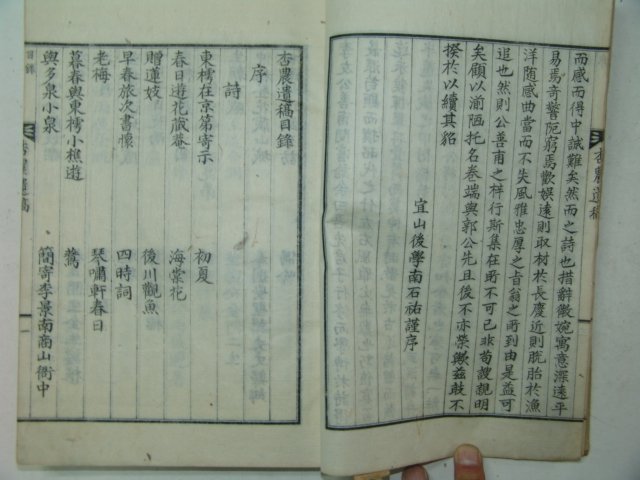 而感而得中誠難矣然而之詩也措辭微婉寓意深遠平
易焉奇警阨窮焉歡娛遠則取材於長慶近則脫胎於漁
洋随感曲當而不失風雅忠厚之旨翁之所到由是益可
追也然則公善甫之梓行斯集在所不可已非苟謏親明
矣顧以湔陋托名卷端與郭公先且後不亦榮歟玆敢不
揆於以續其貂
宜山後學南石祐謹序
杏農遺稿
杏農遺稿目錄
序
詩
東樗在京第寄示
初夏
春日遊花藏庵
海棠花
贈蓮妓
後川觀魚
早春旅次書懷
四時詞
老梅
琴嘯軒春日
暮春與東樗小樵遊
鶯
與多泉小泉
簡寄李景南商山衙中
目錄
杏農遺稿